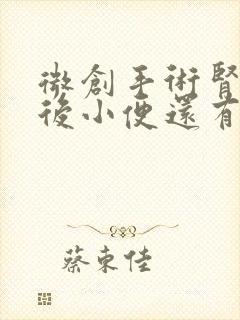 微創手術腎
後小便還有
蔡東佳